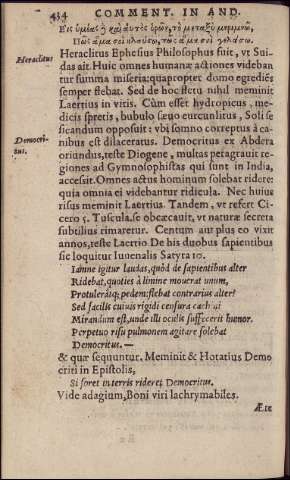 434 COMMENT. IN AND.
Εἰς ὑμέας ἢ καὶ αὐτὸς ὁρῶν, τὸ μεταξὺ μεριμνῶ,
Πῶς ἅμα σοὶ κλαύσω, πῶς ἅμα σοὶ γελάσω.
Heraclitus
Heraclitus Ephesius Philosophus fuit, vt Sui-
das ait. Huic omnes humanæ actiones videban
tur summa miseria: quapropter domo egrediẽs
semper flebat. Sed de hoc fletu nihil meminit
Laertius in vitis. Cùm esset hydropicus, me-
dicis spretis, bubulo sæuo eurcunlitus, Soli se
siccandum opposuit: vbi somno correptus à ca-
nibus est dilaceratus. Democritus ex Abdera
Democri-
tus.
oriundus, teste Diogene, multas peragrauit re-
giones ad Gymnosophistas qui sunt in India,
accessit. Omnes actus hominum solebat ridere
quia omnia ei videbantur ridicula. Nec huius
risus meminit Laertius. Tandem, vt refert Ci-
cero 5. Tuscula. se obcæcauit, vt naturæ secreta
subtilius rimaretur. Centum aut plus eo vixit
annos, teste Laertio De his duobus sapientibus
sic loquitur Iuuenalis Satyra 10.
Iamne igitur laudas, quòd de sapientibus alter
Ridebat, quoties à limine mouerat vnum,
Protuleratq; pedem: flebat contrarius alter?
Sed facilis cuiuis rigidi censura cachini
Mirandum est, unde illi oculis suffecerit humor.
Perpetuo risu pulmonem agitare solebat
Democritus. —
& quæ sequuntur. Meminit & Horatius Demo
criti in Epistolis,
Si foret in terris rideret Democritus.
Vide adagium, Boni viri lachrymabiles.